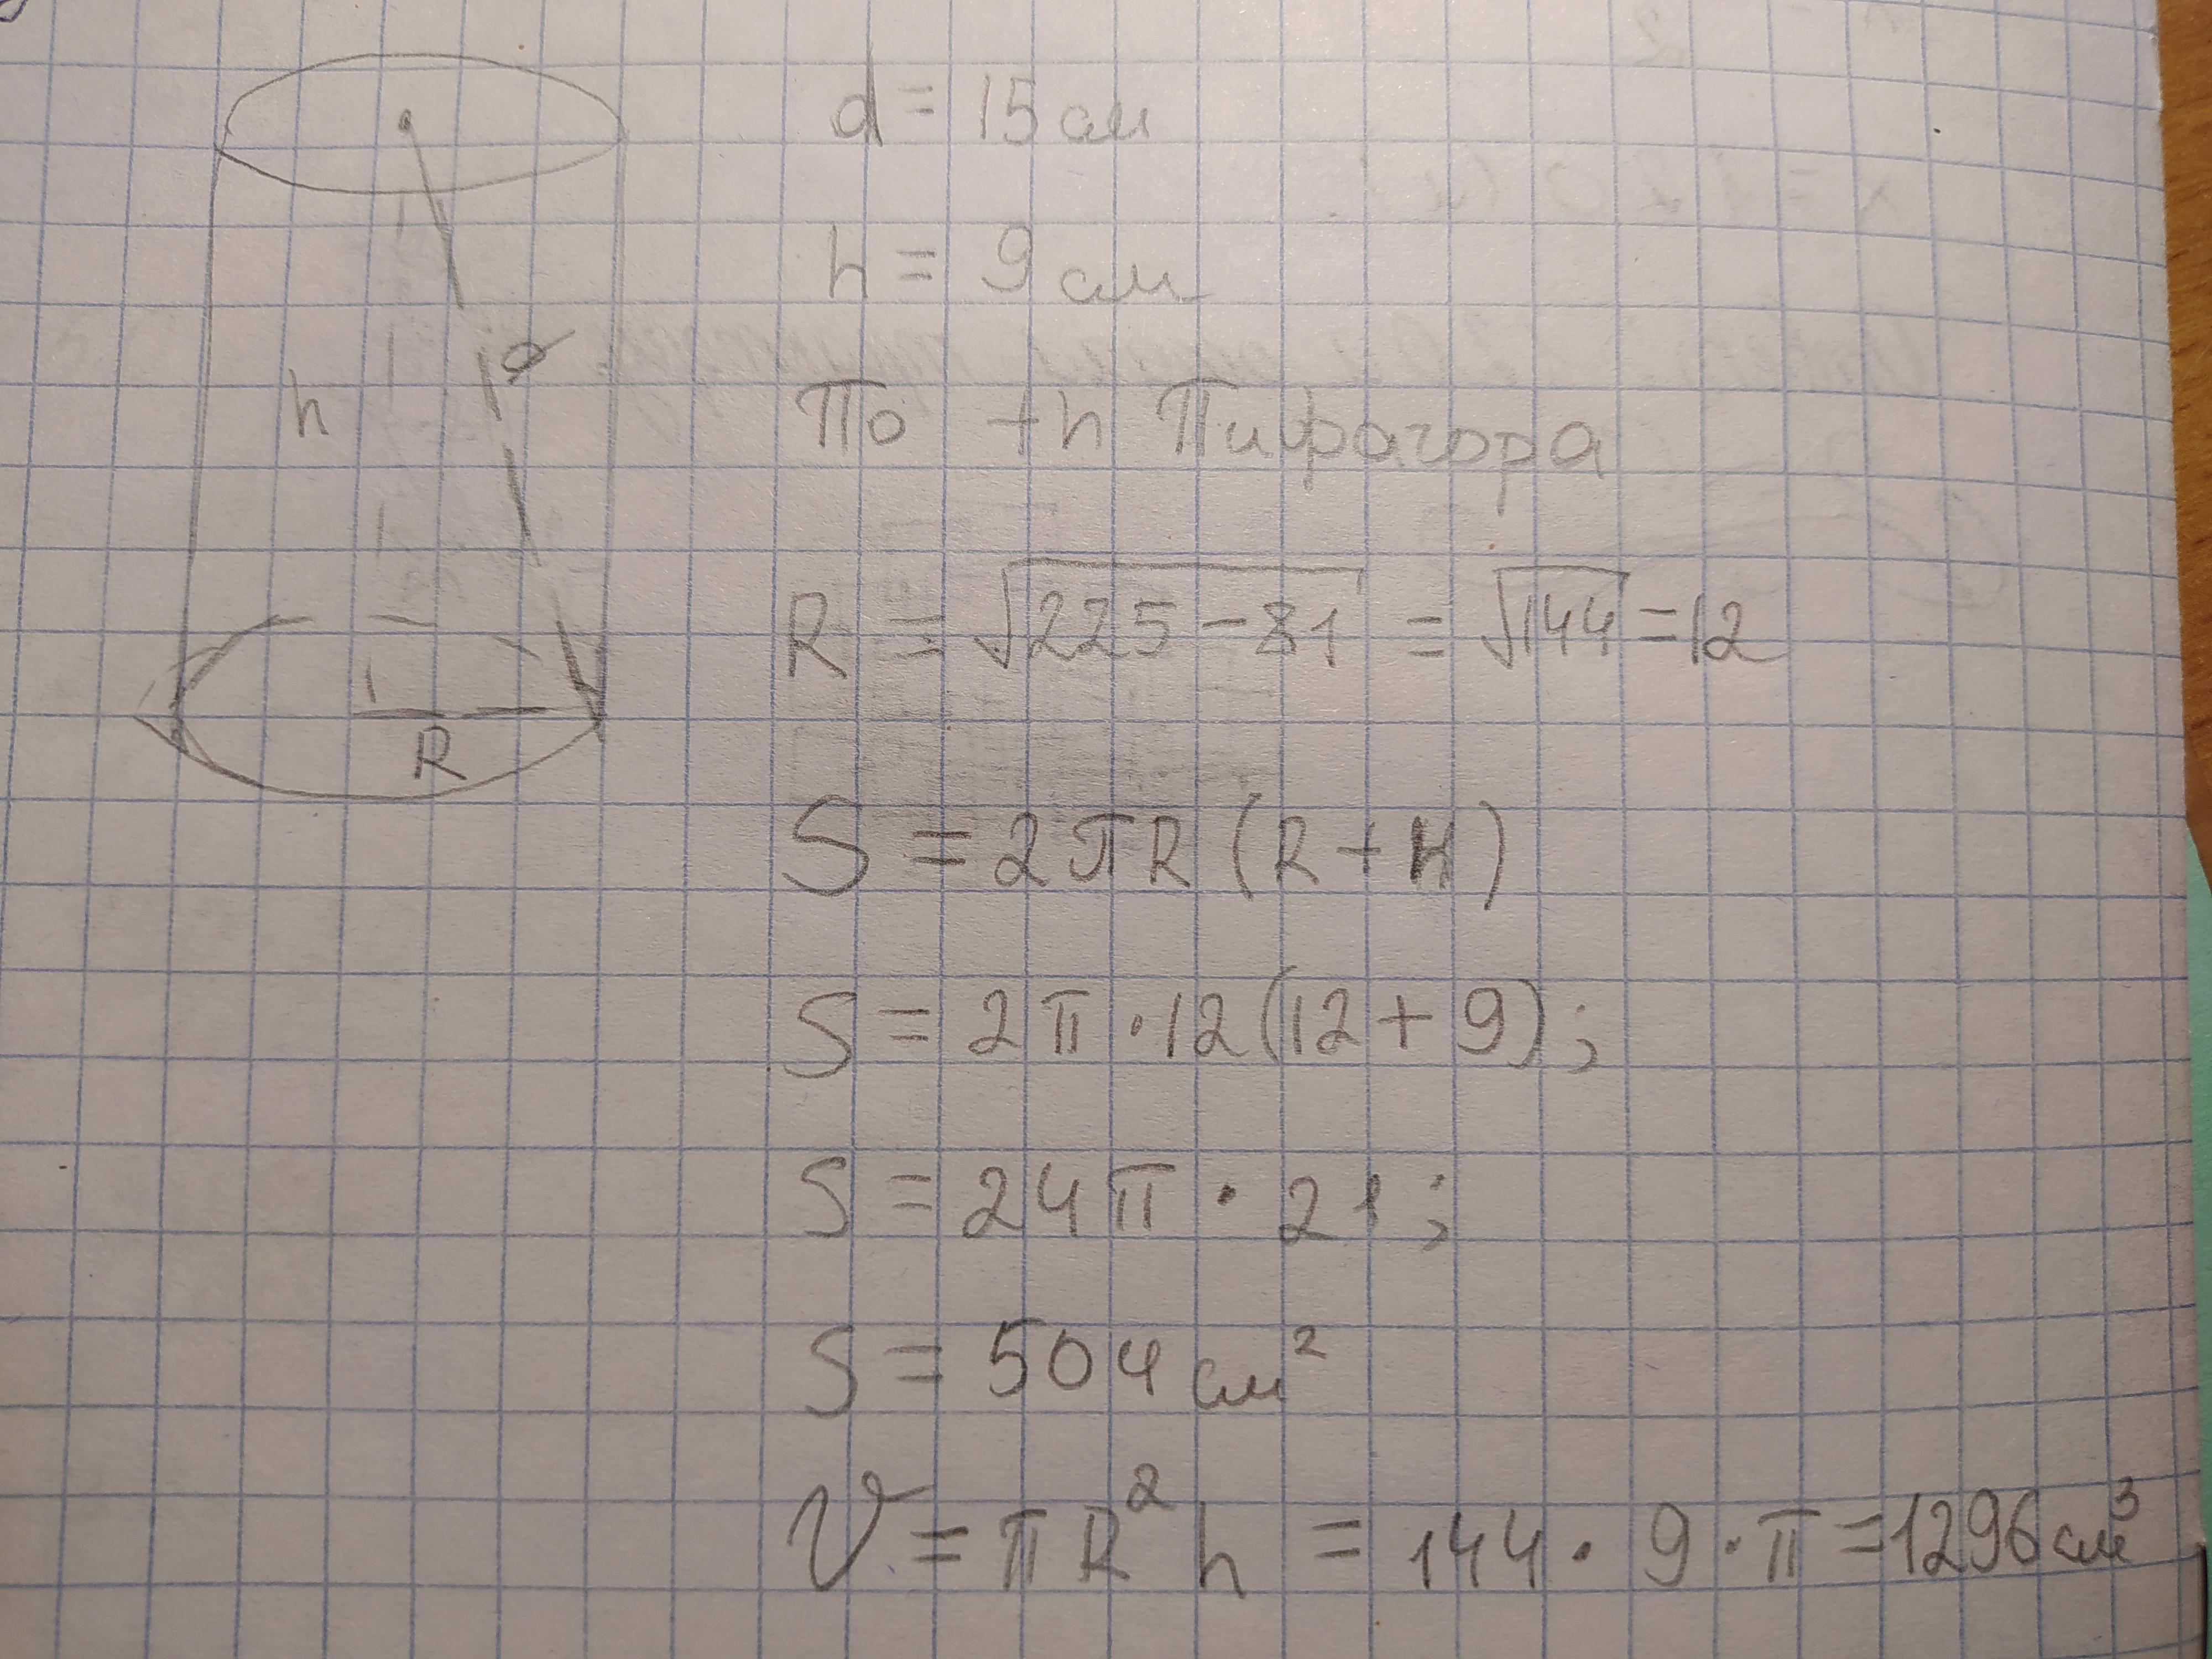 d = 15 см
h = 9 см
По th Пифагора
R = √225 - 81 = √144 = 12
S = 2πR (R + H)
S = 2π · 12 (12 + 9);
S = 24π · 21;
S = 504 см²
V = πR² h = 144 · 9 · π = 1296 см³
h
d
R